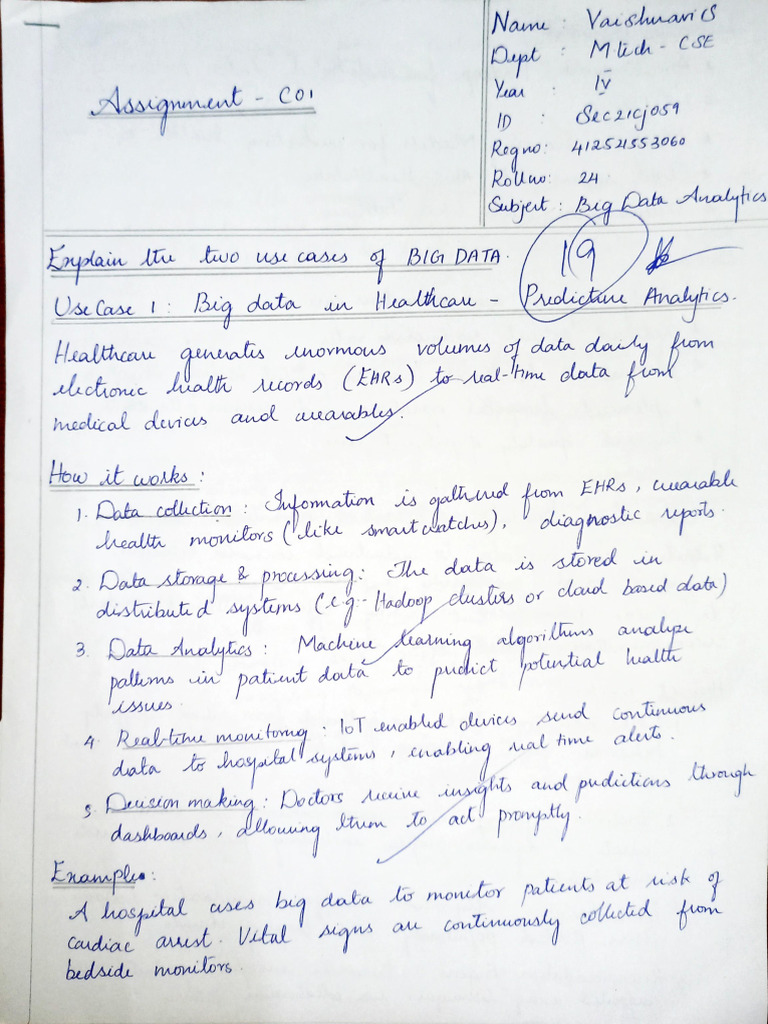 Name : Vaishnavi S
Dept : Mtech - CSE
Year : IV
ID : Sec21cj059
Regno: 412521553060
Rollno: 24
Subject: Big Data Analytics
Assignment - CO1
19
Explain the two use cases of BIG DATA.
Use Case 1 : Big data in Healthcare - Predictive Analytics.
Healthcare generates enormous volumes of data daily from
electronic health records (EHRs) to real-time data from
medical devices and wearables.
How it works :
1. Data collection : Information is gathered from EHRs, wearable
health monitors (like smartwatches), diagnostic reports.
2. Data storage & processing: The data is stored in
distributed systems (e.g:- Hadoop clusters or cloud based data)
3. Data Analytics : Machine learning algorithms analyze
patterns in patient data to predict potential health
issues.
4. Real-time monitoring : IoT enabled devices send continuous
data to hospital systems, enabling real time alerts.
5. Decision making : Doctors receive insights and predictions through
dashboards, allowing them to act promptly.
Example :
A hospital uses big data to monitor patients at risk of
cardiac arrest. Vital signs are continuously collected from
bedside monitors.